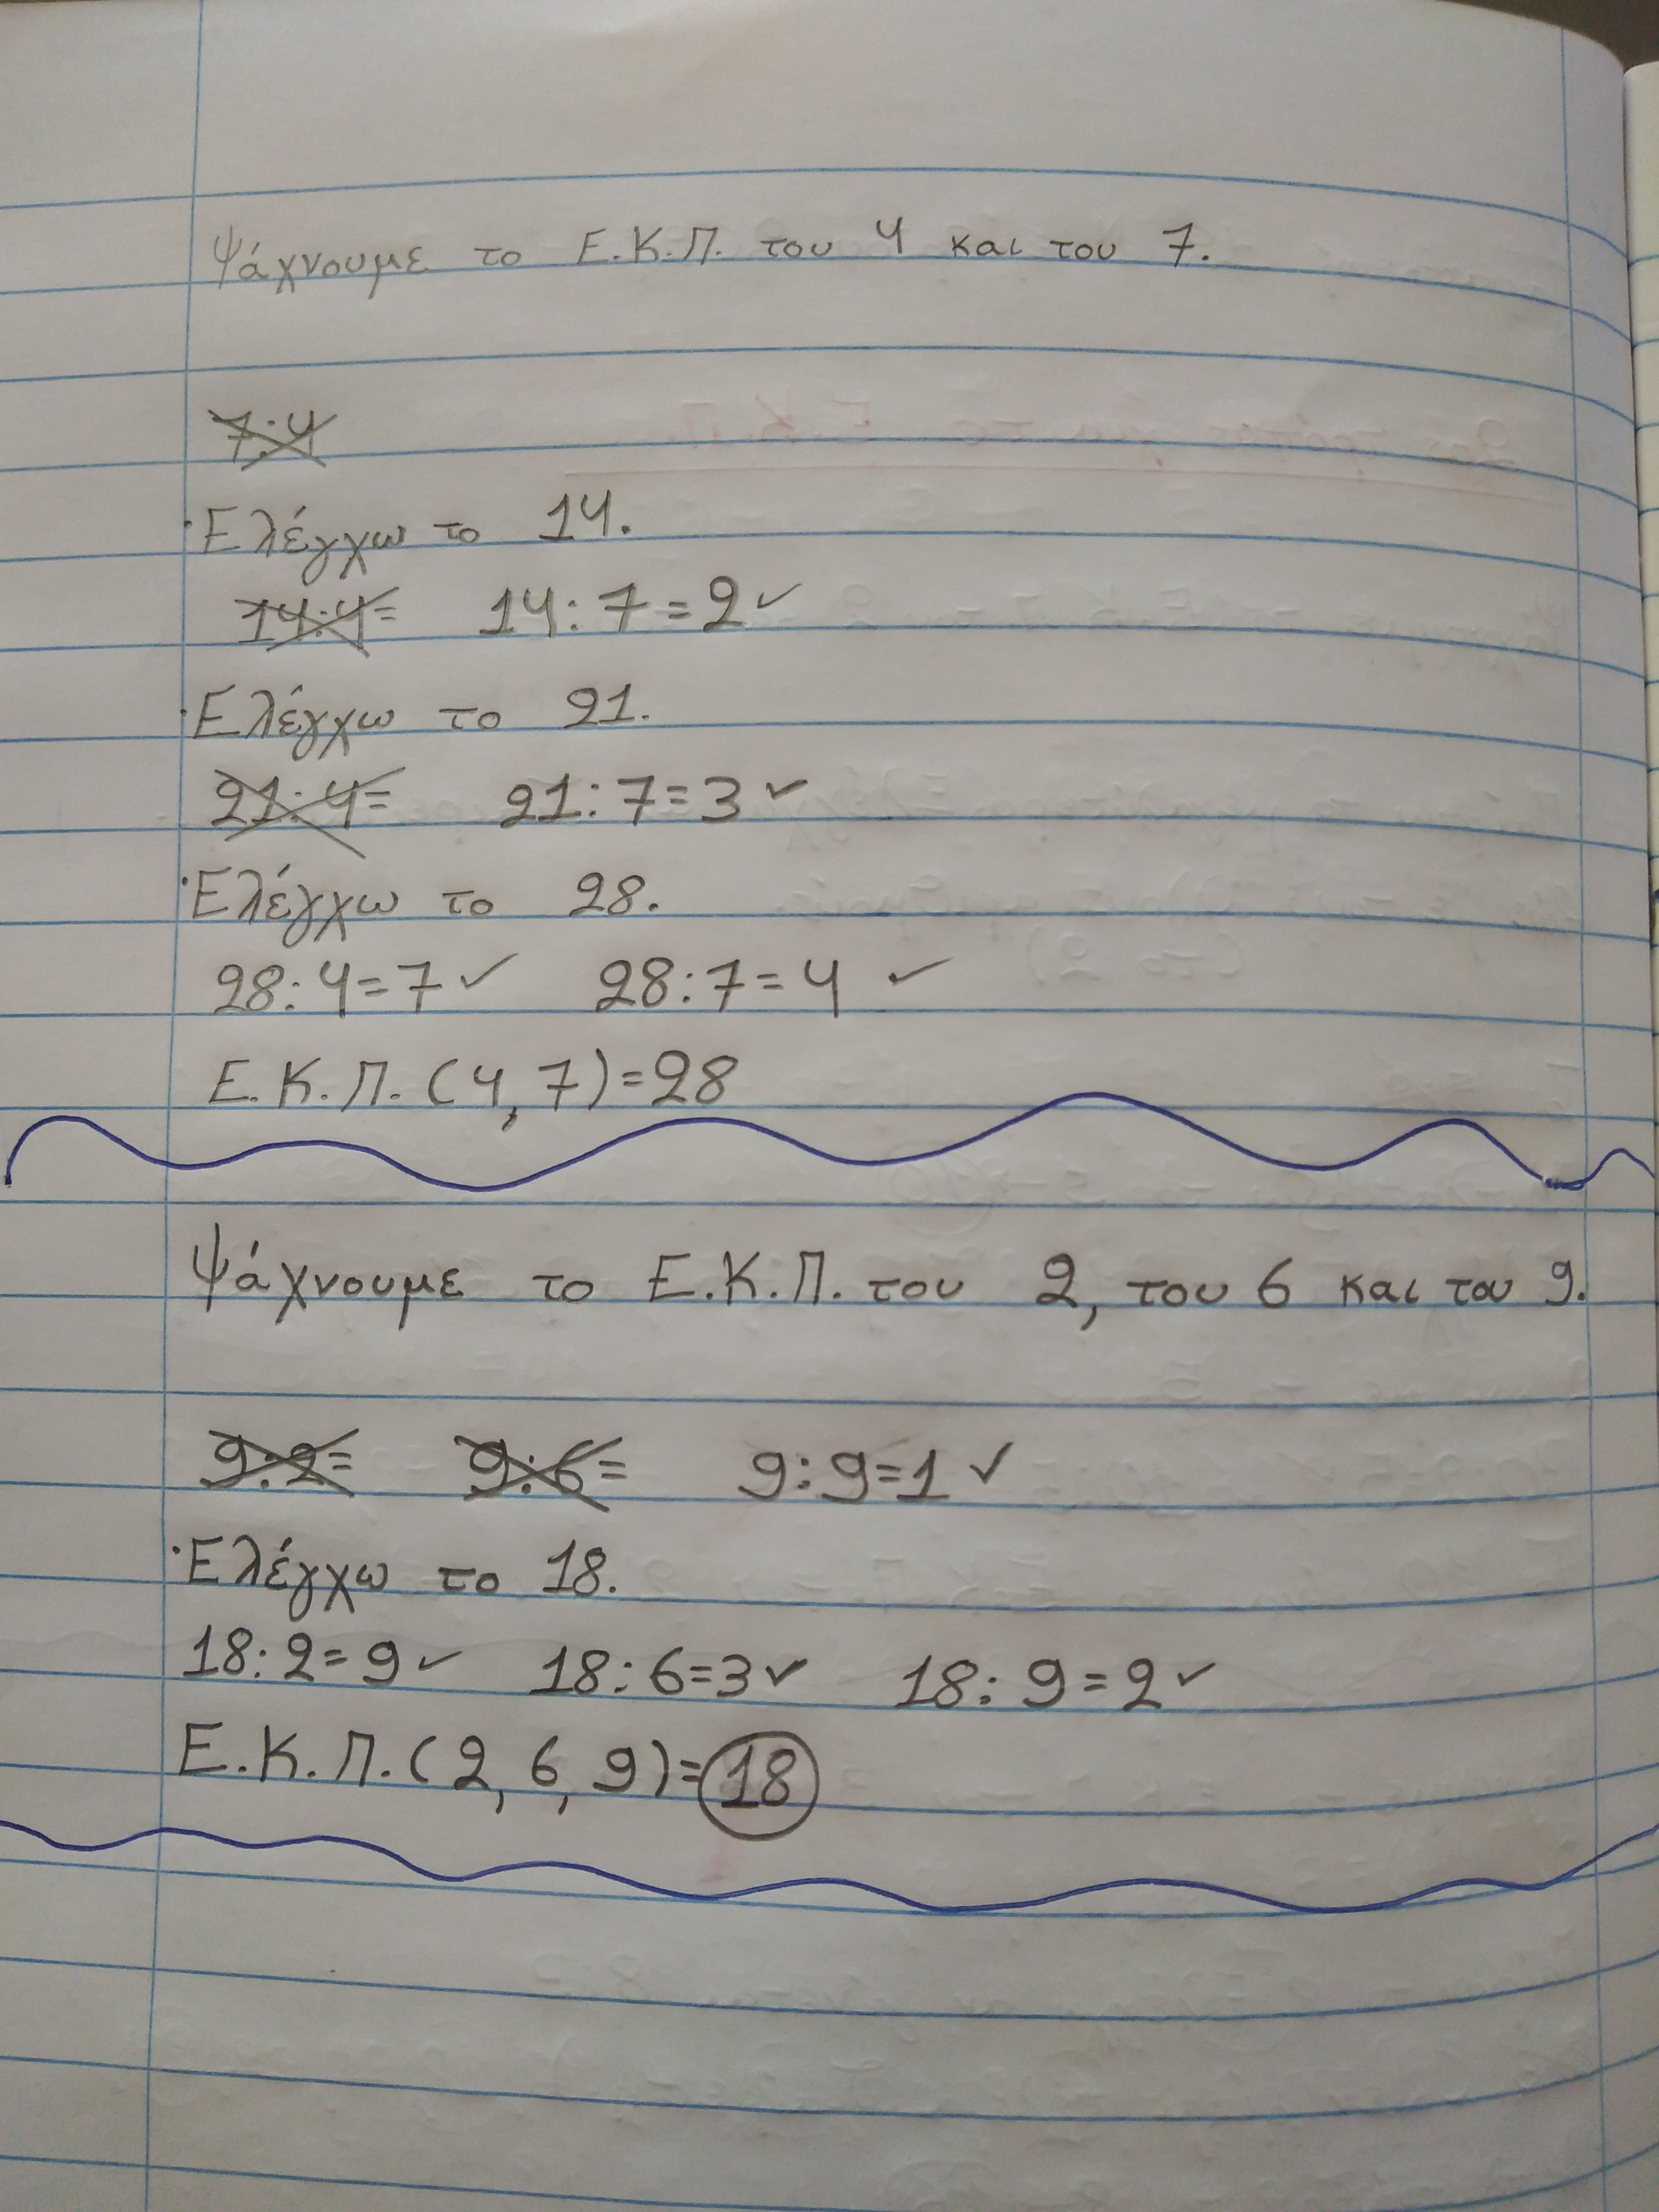 Ψάχνουμε το Ε.Κ.Π. του 4 και του 7.
7:4
·Ελέγχω το 14.
14:4= 14:7=2✓
·Ελέγχω το 21.
21:4= 21:7=3✓
·Ελέγχω το 28.
28:4=7✓ 28:7=4 ✓
Ε.Κ.Π.(4,7)=28
Ψάχνουμε το Ε.Κ.Π. του 2, του 6 και του 9.
9:2= 9:6= 9:9=1 ✓
·Ελέγχω το 18.
18:2=9✓ 18:6=3✓ 18:9=2✓
Ε.Κ.Π.(2,6,9)=18